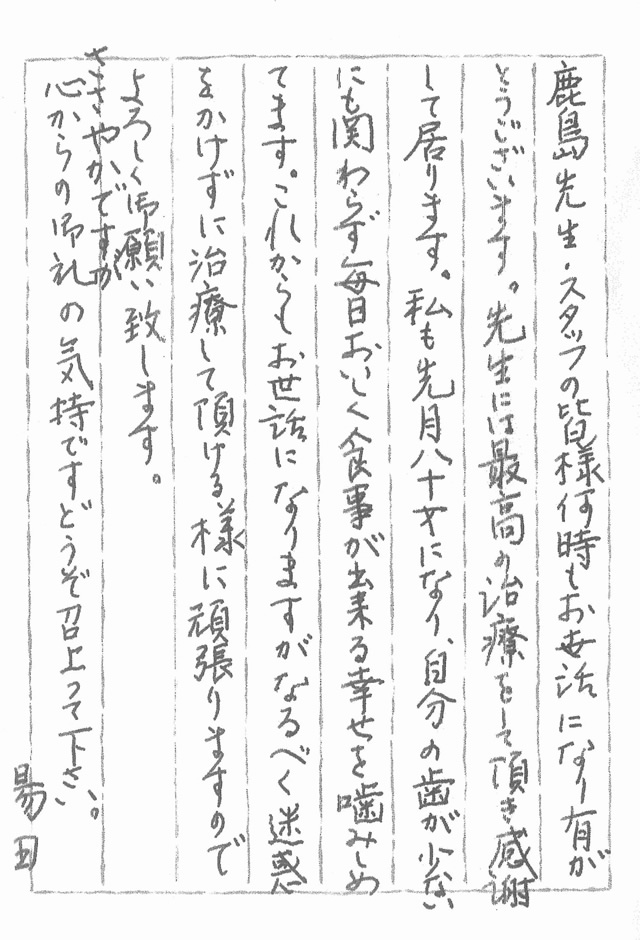 鹿島先生・スタッフの皆様何時もお世話になり有が
とうございます。先生には最高の治療をして頂き感謝
して居ります。私も先月八十才になり、自分の歯が少ない
にも関わらず毎日おいしく食事が出来る幸せを噛みしめ
てます。これからもお世話になりますがなるべく迷惑
をかけずに治療して頂ける様に頑張りますので
よろしく御願い致します。
ささやかですが
心からの御礼の気持ですどうぞ召上って下さい。